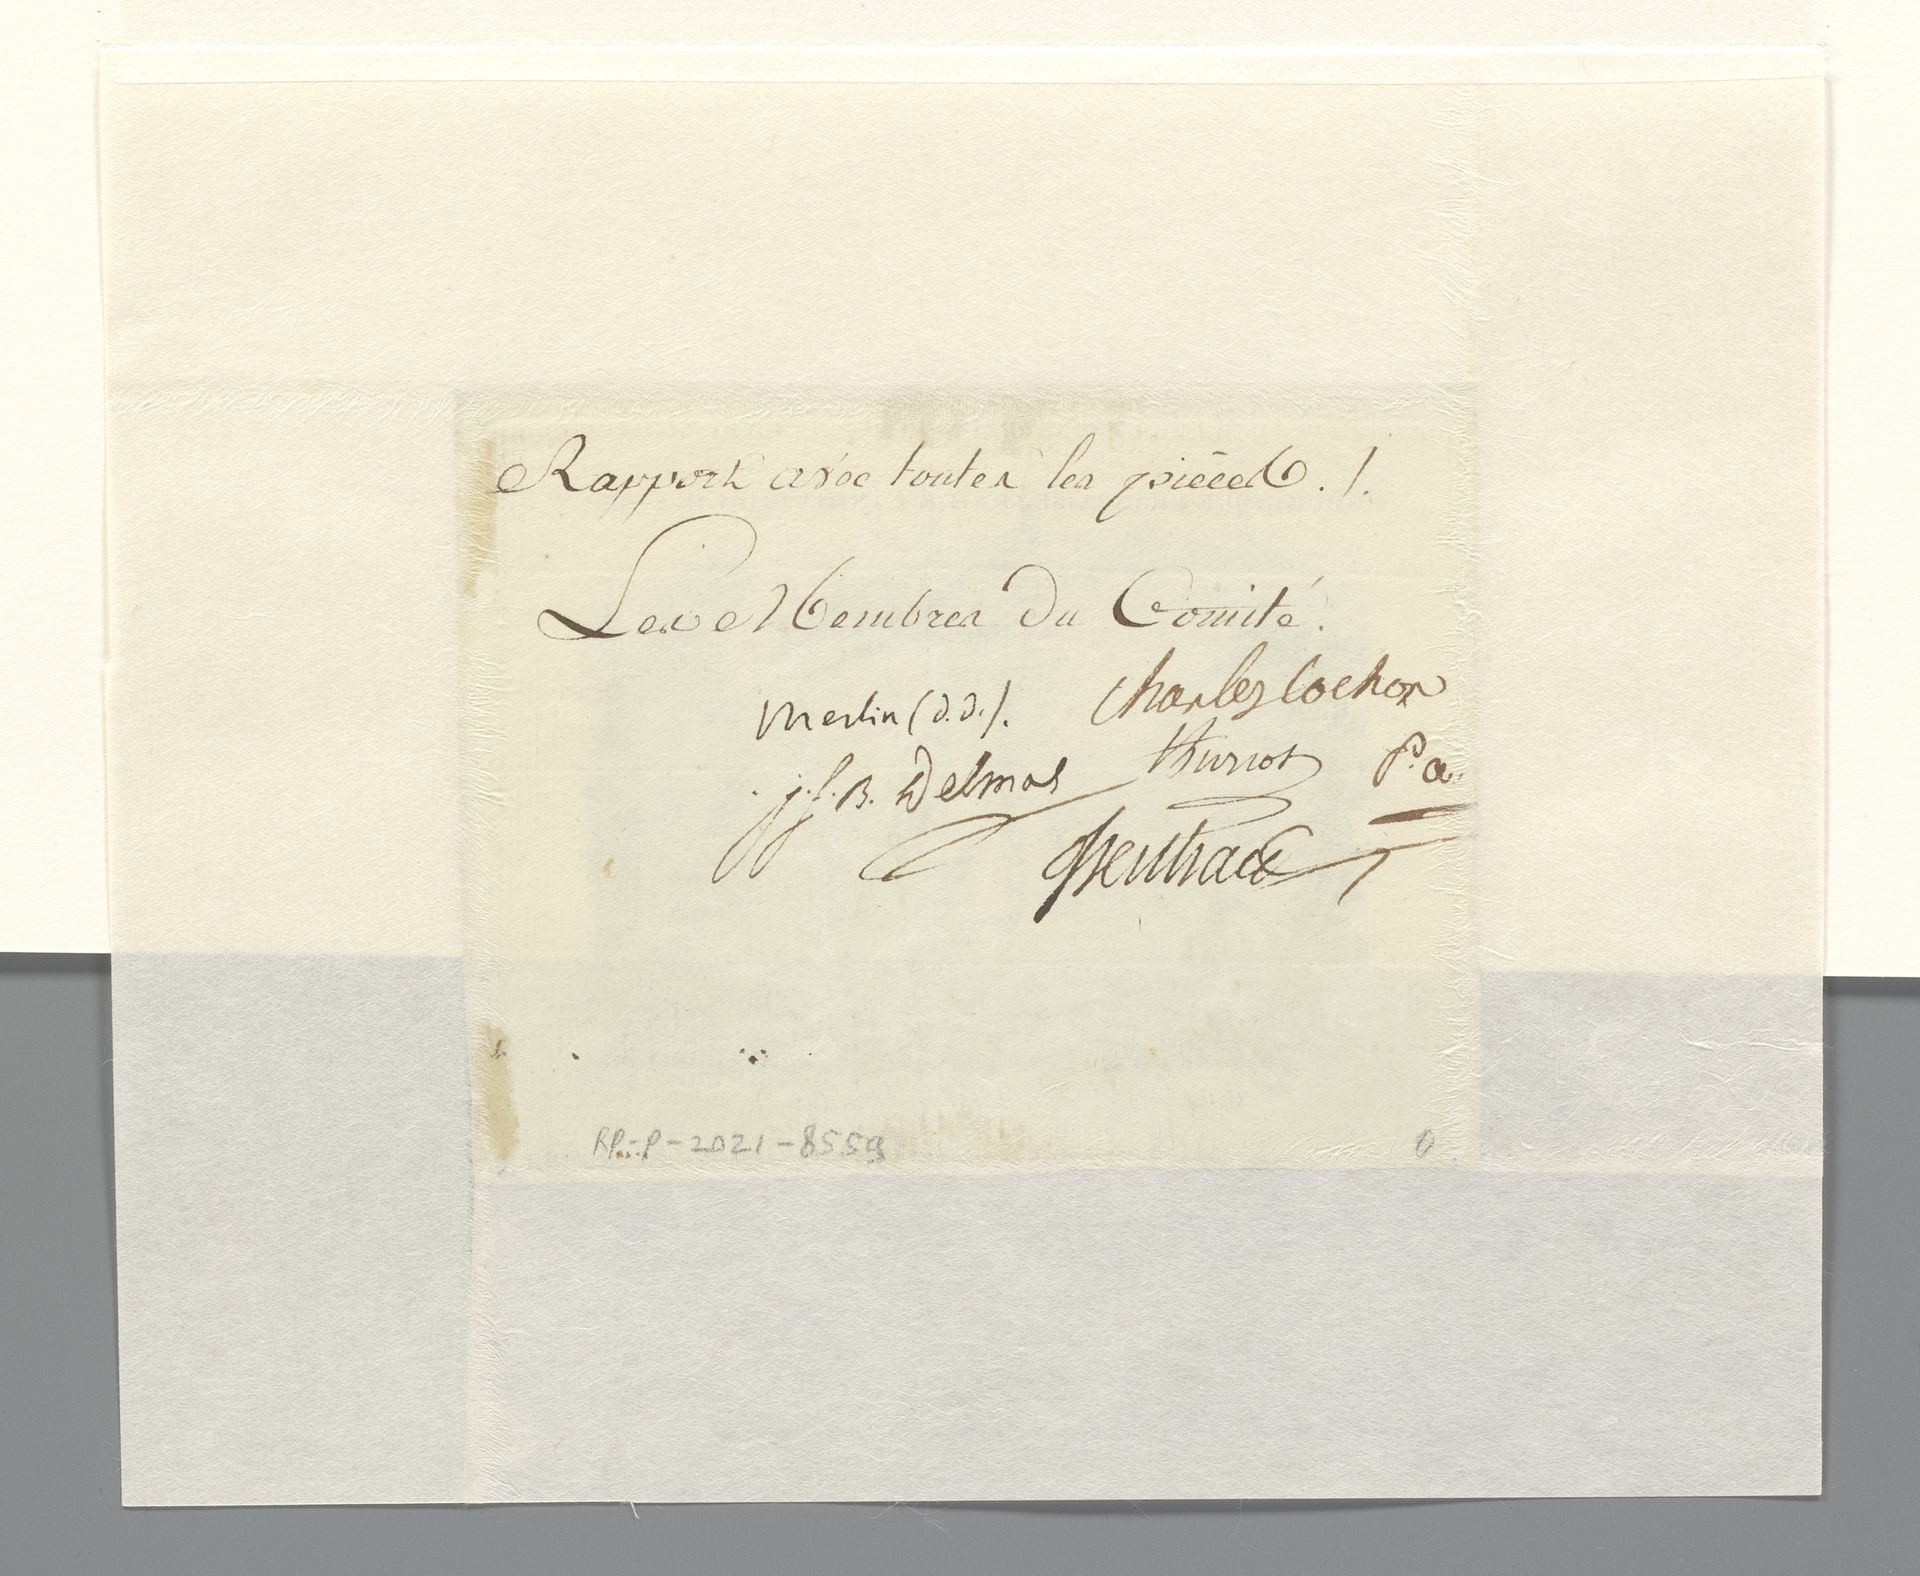 Rapport avec toutes les pièces ./.
Les Membres du Comité.
Merlin (d. d.). Charles Cochon
j. f. B. Delmas thuriot P. a.
RP-P-2021-8559 0